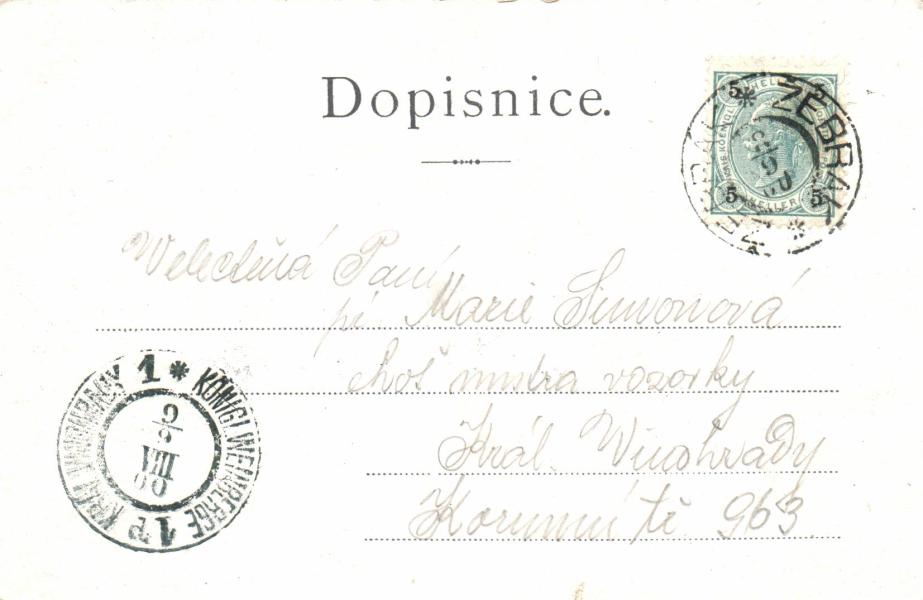 Dopisnice.
5 5
HELLER
5 5
ŽEBRÁK
Velectěná Paní
pí Marie Simonová
choť mistra vozovky
Král. Vinohrady
Korunní tř 963
1 * KÖNIGL WEINBERGE 1
KRÁL VINOHRADY
9
VIII
00